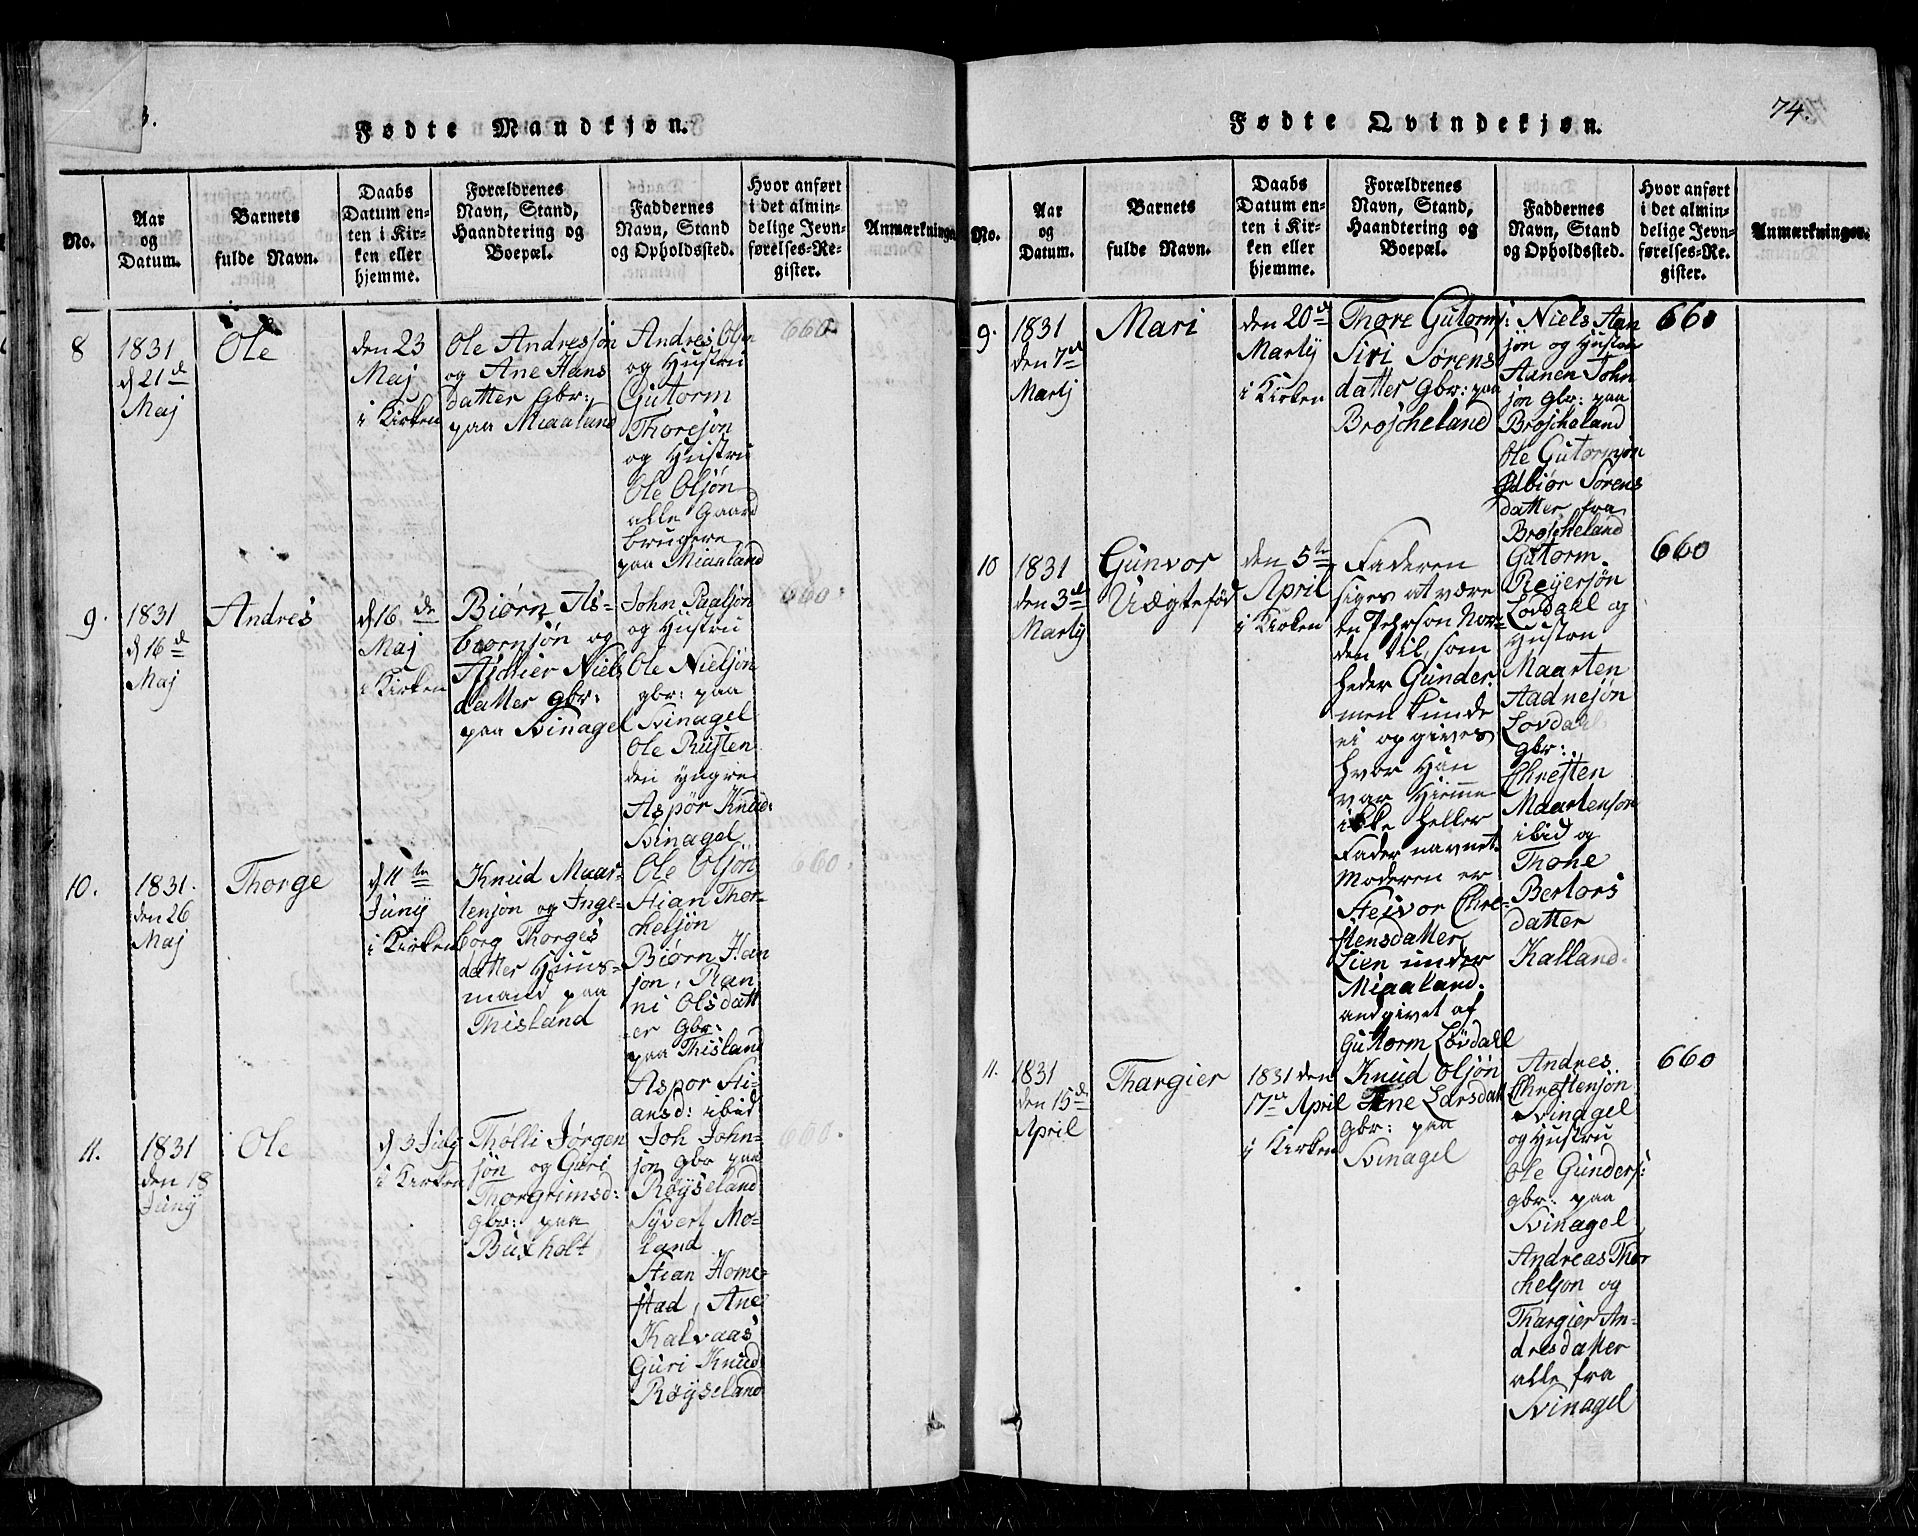 3.
Fødte Mandkjøn.
No.
Aar
og
Datum.
Barnets
fulde Navn.
Daabs
Datum en-
ten i Kir-
ken eller
hjemme.
Forældrenes
Navn, Stand,
Haandtering og
Boepæl.
Faddernes
Navn, Stand
og Opholdssted.
Hvor anført
i det almin-
delige Jevn-
førelses-Re-
gister.
Anmærkninge
8
1831
d 21de
Maj
Ole
den 23
Maj
i Kirken
Ole Andresjøn
og Ane Hans
datter gbr:
paa Miaaland
Andres Oljn
og Hustru
Gutorm
Thoresjøn
og Hustru
Ole Oljøn
alle Gaard
brugere
paa Miaaland
660
9.
1831
d 16de
Maj
Andres
d 16de
Maj
i Kirken
Biørn As-
biørnsjøn og
Niels
datter gbr:
paa Svinagel
John Paaljøn
og Hustru
Ole Nieljøn
gbr: paa
Svinagel
Ole Rusten
den yngre
Aspør Knud:
Svinagel
660.
10.
1831.
den 26
Maj
Thorge
d 11te
Juny
i Kirken
Knud Maar-
tensjøn og Inge-
borg Thorges
datter Huus-
mand paa
Thisland
Ole Oljøn
Stian Thor-
cheljøn
Biørn Han
jon, Ran
ni Olsdatt
er gbr:
paa Thisland
Aspor Sti-
ansd: ibid
660.
11.
1831
den 18
Juny
Ole
d 3 July
i Kirken
Thølli Jørgen
jøn og Guri
Thorgrimsd:
gbr: paa
Buxholt
Joh John-
jøn gbr paa
Røyseland
Syvert Mo-
land
Stian Home-
stad, Ane
Kalvaas
Guri Knud
Røyseland
660.
74.
Fødte Qvindekjøn.
No.
Aar
og
Datum.
Barnets
fulde Navn.
Daabs
Datum en-
ten i Kir-
ken eller
hjemme.
Forældrenes
Navn, Stand,
Haandtering og
Boepæl.
Faddernes
Navn, Stand
og Opholdssted.
Hvor anført
i det almin-
delige Jevn-
førelses-Re-
gister.
Anmærkninger.
9.
1831
den 7de
Martj
Mari
den 20de
Martij
i Kirken
Thore Gutormj:
Siri Sørens
datter gbr: paa
Broscheland
Niels Aan
jøn og Hustru
Aanen John
jøn gbr: paa
Broscheland
Ole Gutormjøn
Odbiør Sørens
datter fra
Broscheland
660
10
1831
den 3de
Martij
Gunvor
Uægtefød
den 5te
April
i Kirken
Faderen
siges at være
en Pehrson Nor-
den til, som
heder Gunder.
men kunde
ei opgives
hvor Han
var Hiemme
ikke heller
Fader navnet.
Moderen er
Steivor Chre-
stensdatter
Lien under
Miaaland.
andgivet af
Gutorm Løvdall
Gutorm
Reyersjøn
Løvdahl og
Hustru
Maarten
Aadnesjøn
Lovdal
gbr:
Chresten
Maartensøn
ibid og
Thone
Bertors
datter
Kalland.
660
11.
1831
den 15de
April
Thargier
1831 den
17de April
i Kirken
Knud Oljøn
Ane Larsdatt
gbr: paa
Svinagel
Andres
Chrestensjøn
Svinagel
og Hustru
Ole Gunders:
gbr: paa
Svinagel
Andreas Thor
cheljon og
Thargier An-
dresdatter
alle fra
Svinagel
660